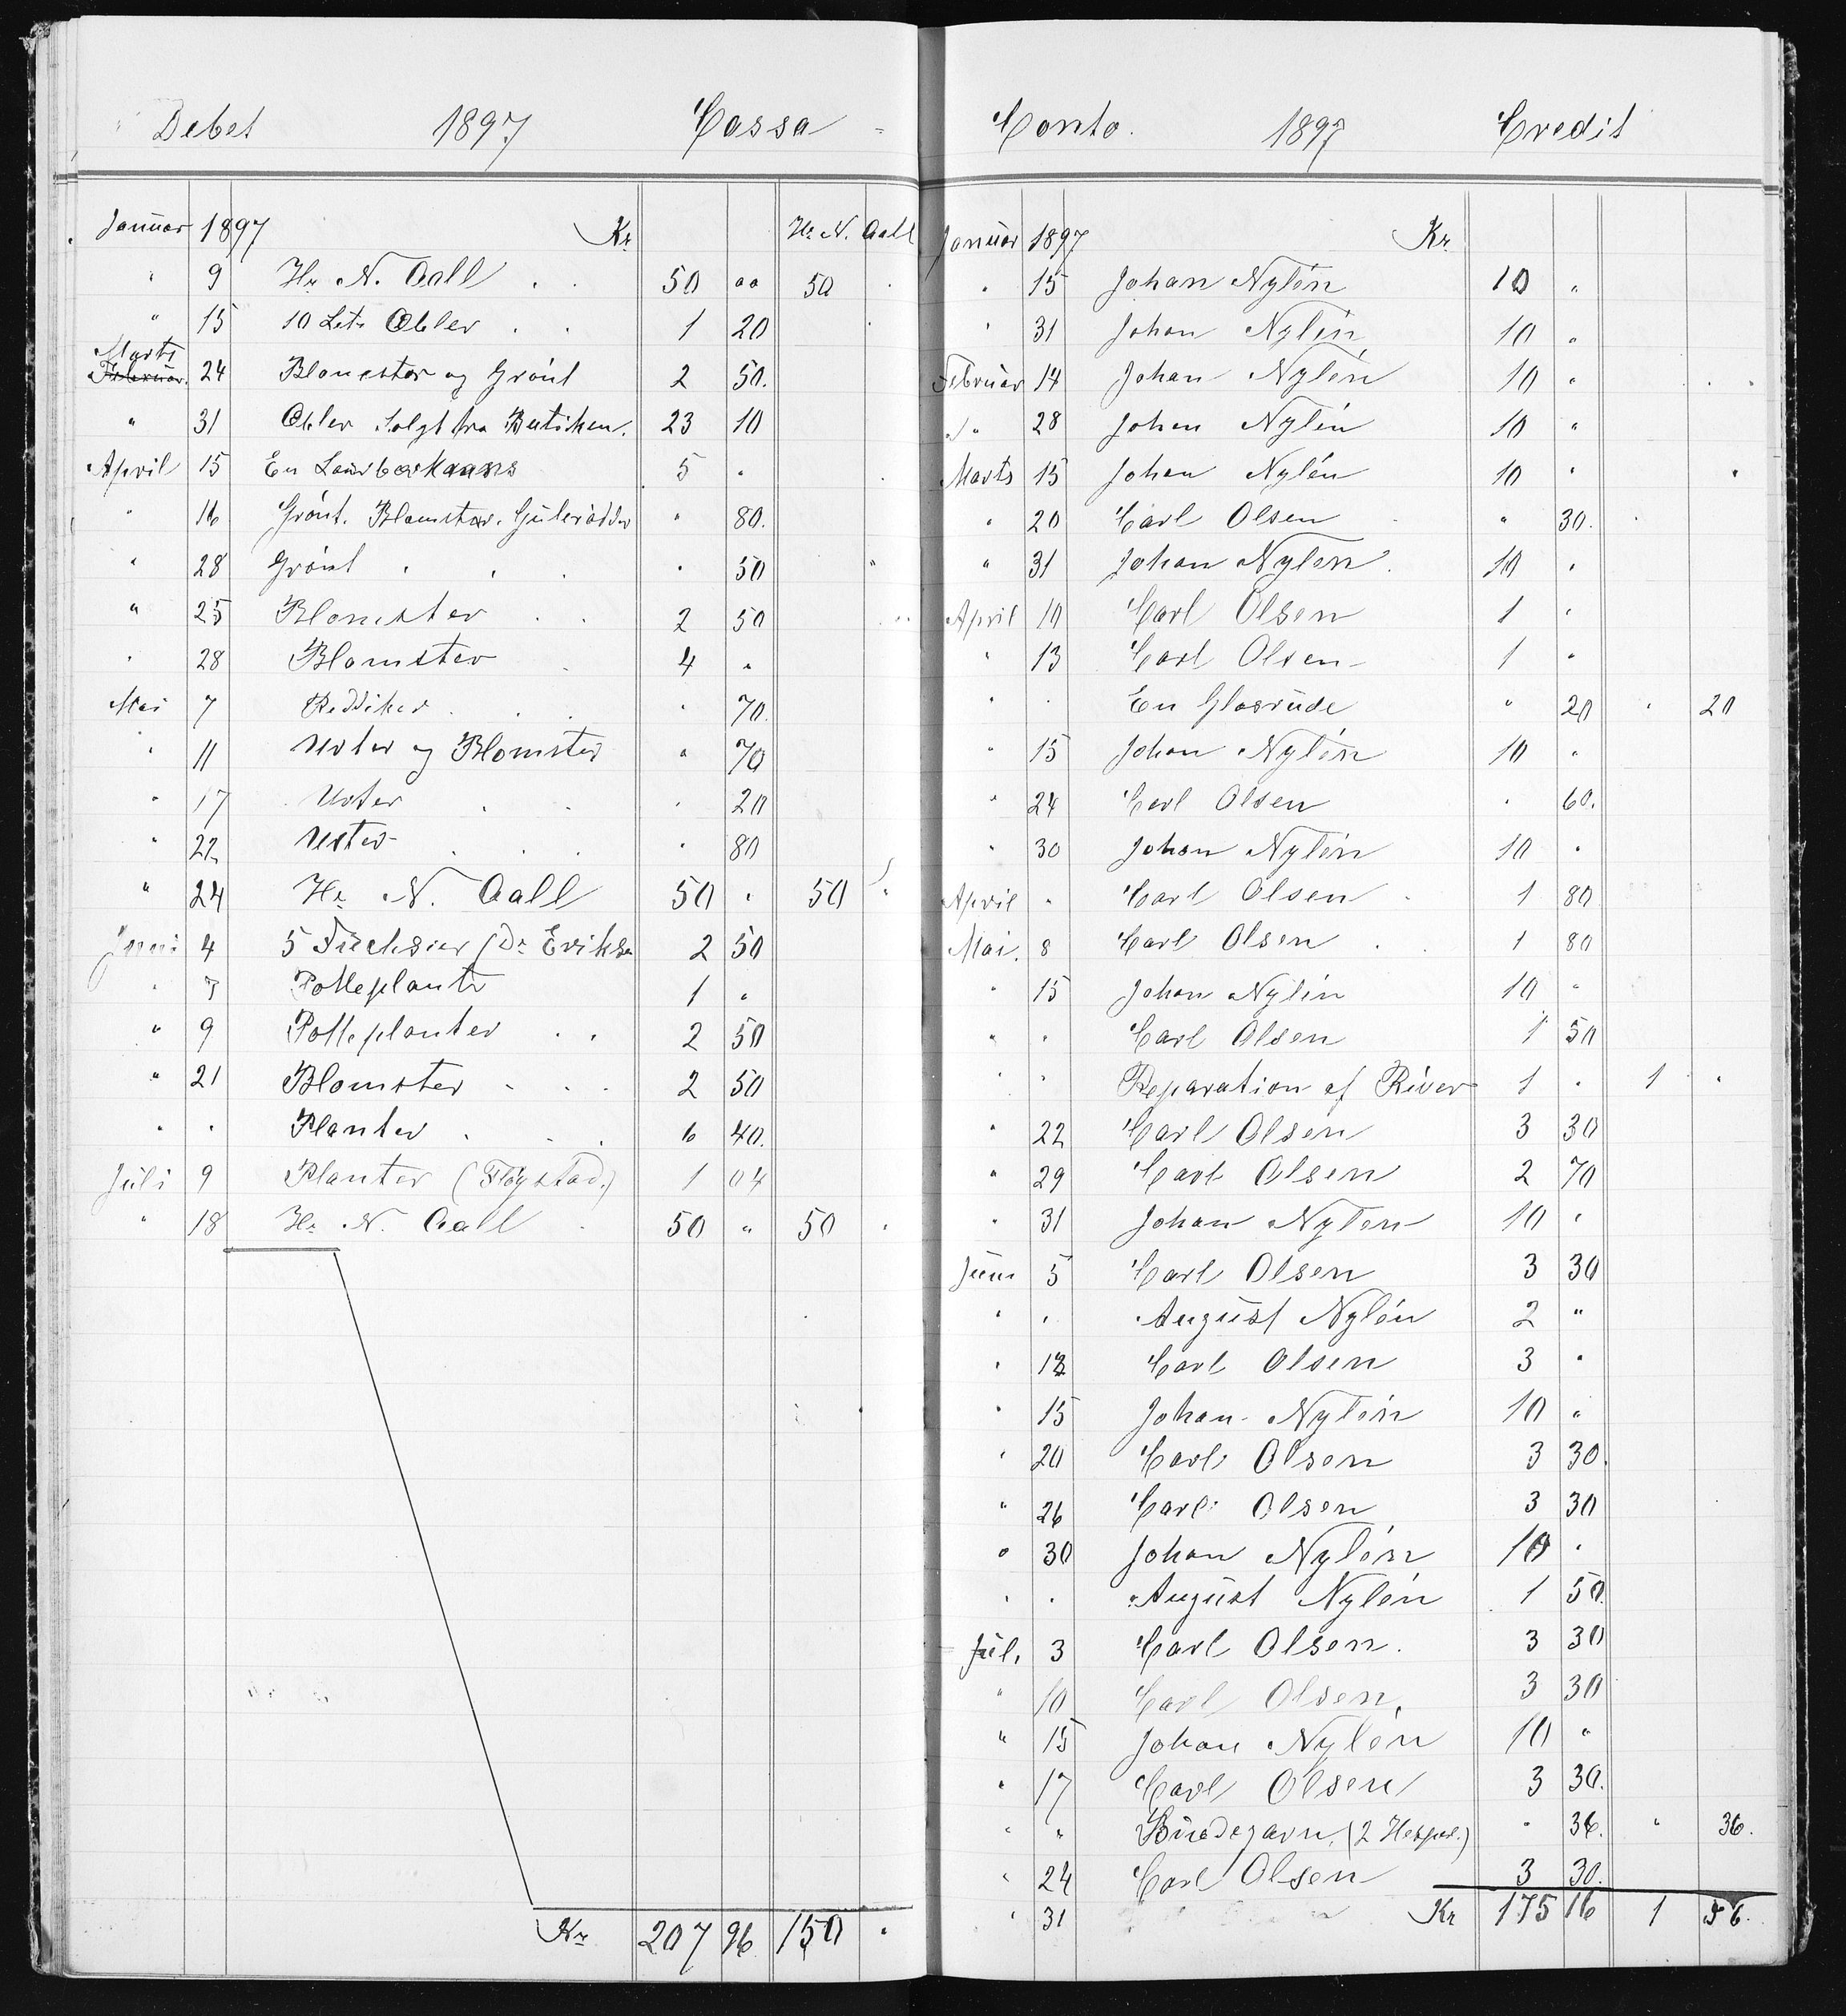 Debet 1897 Cassa
Januar 1897 Kr. Hr. N. Aall
" 9 Hr. N. Aall . . 50 " " 50 .
" 15 10 Lit. Æbler . . 1 20
Marts
Februar. 24 Blomster og Grönt 2 50.
" 31 Æbler Solgt fra Butiken. 23 10
April 15 En Laurbærkrans 5 "
" 16 Grönt. Blomster. Gülerödder " 80.
" 28 Grönt . . . " 50
" 25 Blomster . . 2 50
" 28 Blomster . 4 "
Mai 7 Reddiker . . . " 70.
" 11 Urter og Blomster " 70
" 17 Urter . . " 20
" 22 Urter . . . " 80
" 24 Hr. N. Aall 50 " 50 "
Juni 4 5 Fuchsier (Dr. Eriksen 2 50
" 7 Potteplante 1 "
" 9 Potteplanter . . 2 50
" 21 Blomster . . . 2 50
" " Planter . . . 6 40.
Juli 9 Planter (Flögstad.) 1 04
" 18 Hr. N. Aall . 50 " 50 .
Kr. 207 96 150 "
Conto. 1897 Credit
Januar 1897 Kr.
" 15 Johan Nylén 10 "
" 31 Johan Nylén 10 "
Februar 14 Johan Nylén 10 "
" 28 Johan Nylén 10 "
Marts 15 Johan Nylén 10 "
" 20 Carl Olsen " 30.
" 31 Johan Nylén. 10 "
April 10 Carl Olsen 1 "
" 13 Carl Olsen 1 "
" " En Glasrüde " 20 " 20
" 15 Johan Nylén 10 "
" 24 Carl Olsen " 60.
" 30 Johan Nylén 10 "
April " Carl Olsen . 1 80
Mai. 8 Carl Olsen . . 1 80
" 15 Johan Nylén 10 "
" " Carl Olsen 1 50
" " Reparation af River 1 " 1 "
" 22 Carl Olsen 3 30
" 29 Carl Olsen 2 70
" 31 Johan Nylén 10 "
Juni 5 Carl Olsen 3 30
" " August Nylén 2 "
" 12 Carl Olsen 3 "
" 15 Johan Nylén 10 "
" 20 Carl Olsen 3 30.
" 26 Carl Olsen 3 30
" 30 Johan Nylén 10 "
" " August Nylén 1 50.
Jül. 3 Carl Olsen. 3 30
" 10 Carl Olsen. 3 30
" 15 Johan Nylén 10 "
" 17 Carl Olsen 3 30.
" " Bindegarn. (2 Hesper.) " 36. " 36.
" 24 Carl Olsen 3 30.
" 31 Kr 175 16 1 56.